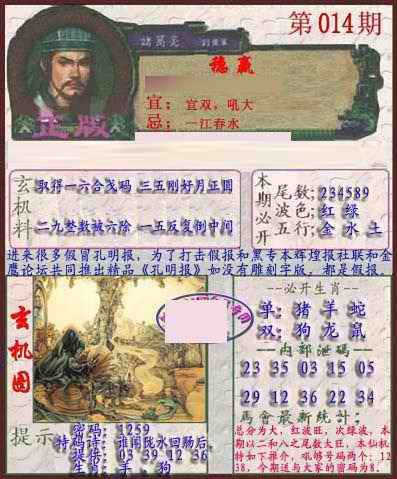 第014期
諸葛亮
稳赢
宜:宜双,吼大
忌:一江春水
正版
玄机料
取得一六合戊码 三五刚好月正圆
二九整数被六除 一五反复倒中间
本期必开
尾数:234589
波色:红 绿
五行:金 水 土
进来很多假冒孔明报,为了打击假报和黑专本辉煌报社联和金
鹰论坛共同推出精品《孔明报》如没有雕刻字版,都是假报。
玄机图
--必开生肖--
单:猪 羊 蛇
双:狗 龙 鼠
--内部泄码--
23 35 03 15 05
34 29 12 36 45
马會最新統计:
总分为大,红波旺,次绿波,本
期以二和八之尾数大旺,本仙机
特如下推介,吼够号码两个:12
38,今期送与大家的密码为8.
提示
密码:1259
特码诗:谁闻陇水回肠后,
提倍:03 39 12 36
生肖:羊.狗